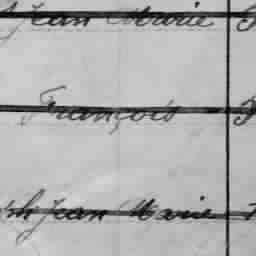 Jean Marie
François
Jean Marie